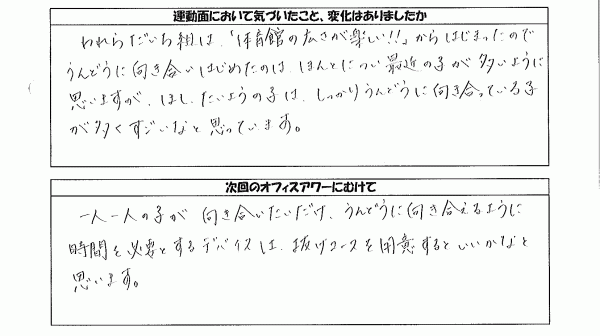 運動面において気づいたこと、変化はありましたか
われらだいち組は、「体育館の広さが楽しい!!」からはじまったので
うんどうに向き合いはじめたのは、ほんとについ最近の子が多いように
思いますが、ほし、たいようの子は、しっかりうんどうに向き合っている子
が多くすごいなと思っています。
次回のオフィスアワーにむけて
一人一人の子が向き合いたいだけ、うんどうに向き合えるように
時間を必要とするデバイスは、抜けコースを用意するといいかなと
思います。